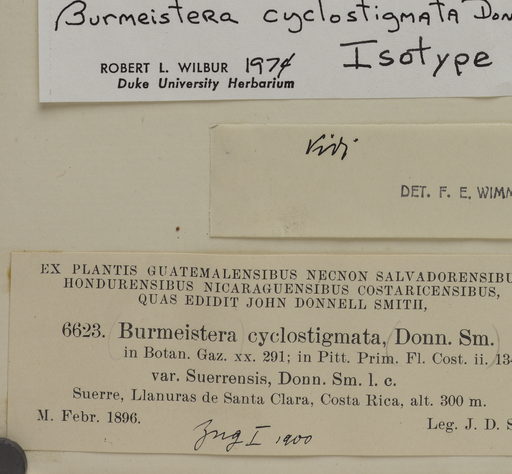 Burmeistera cyclostigmata Don
Isotype
ROBERT L. WILBUR 1974
Duke University Herbarium
Vidi
DET. F. E. WIMM
EX PLANTIS GUATEMALENSIBUS NECNON SALVADORENSIBU
HONDURENSIBUS NICARAGUENSIBUS COSTARICENSIBUS,
QUAS EDIDIT JOHN DONNELL SMITH,
6623. (Burmeistera) cyclostigmata, (Donn. Sm.)
in Botan. Gaz. xx. 291; in Pitt. Prim. Fl. Cost. ii. 13
var. Suerrensis, Donn. Sm. l. c.
Suerre, Llanuras de Santa Clara, Costa Rica, alt. 300 m.
M. Febr. 1896.
Leg. J. D. S
I 1900